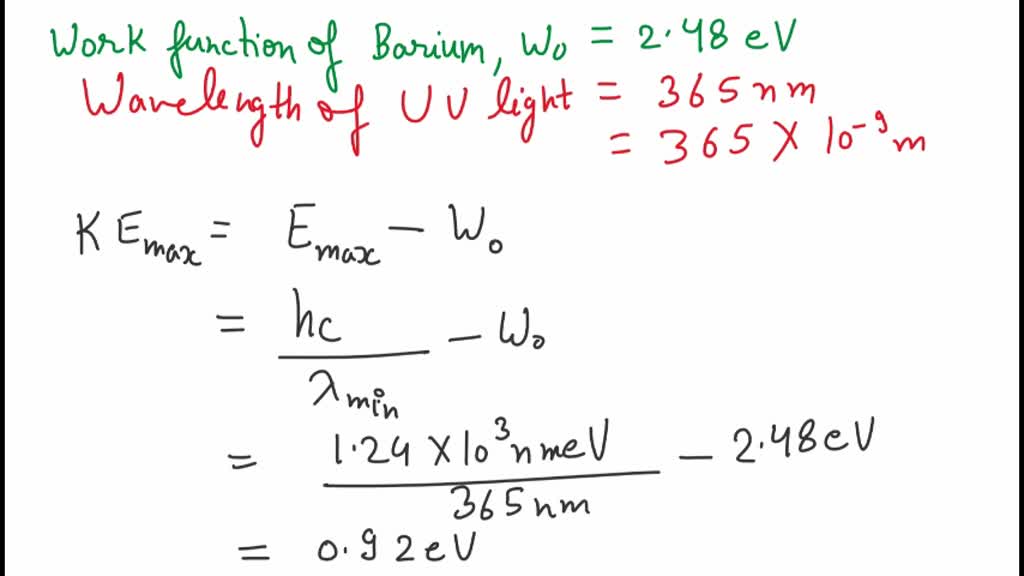 Work function of Barium, W₀ = 2.48 eV
Wavelength of UV light = 365 nm
= 365 × 10⁻⁹ m
KE_max = E_max − W₀
= hc / λ_min − W₀
= 1.24 × 10³ nm eV / 365 nm − 2.48 eV
= 0.92 eV